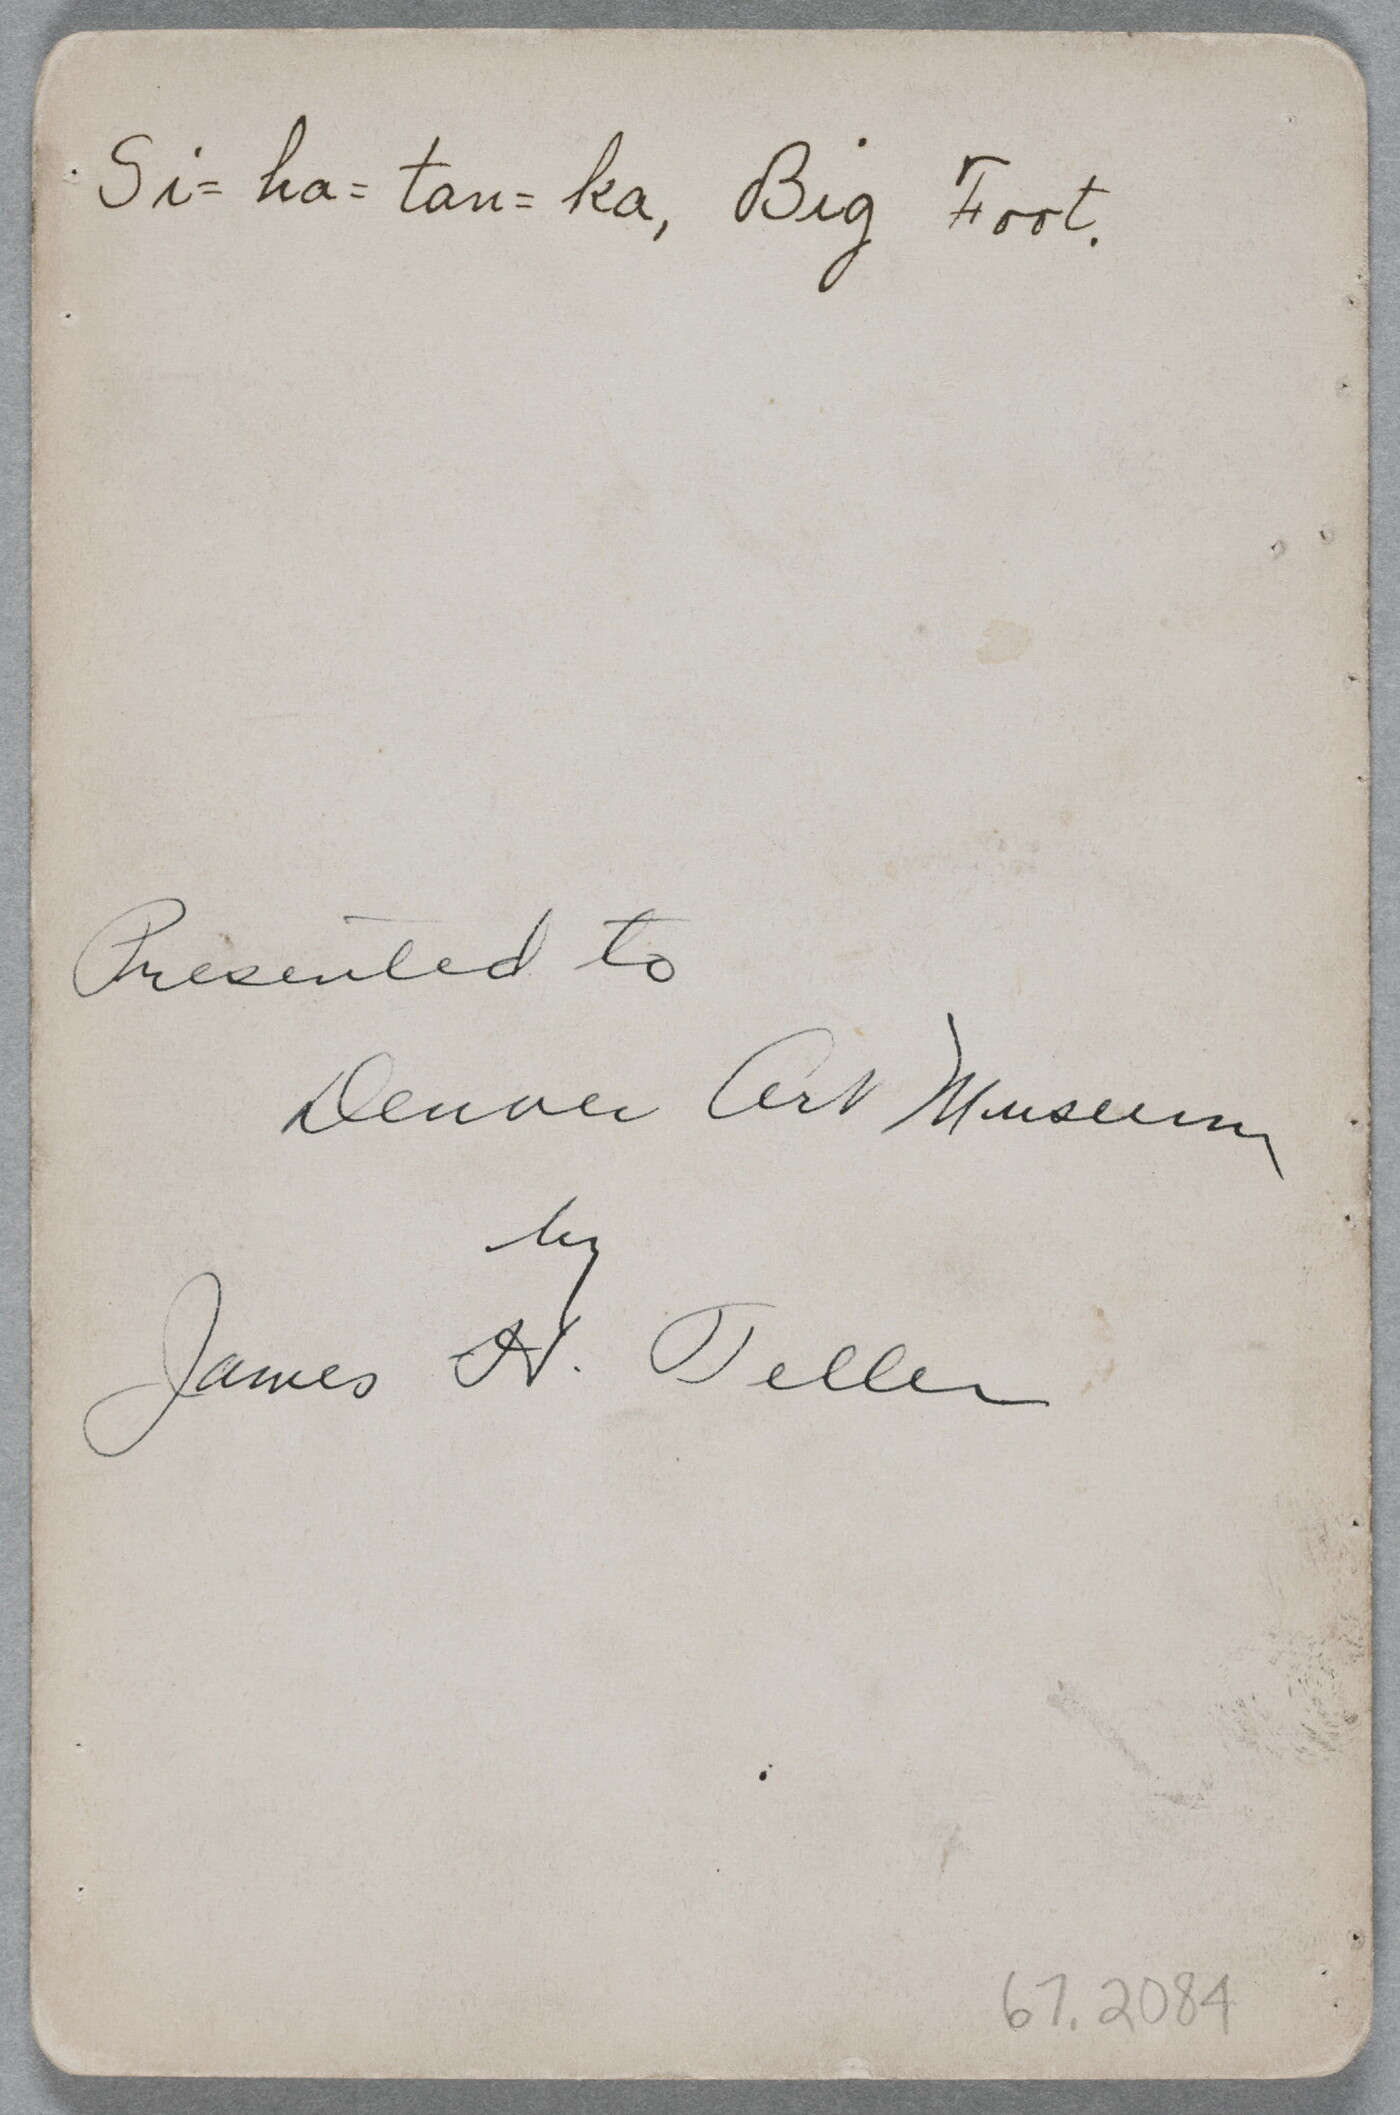 Si= ha= tan= ka, Big Foot.
Presented to
Denver Art Museum
by
James H. Teller
67.2084